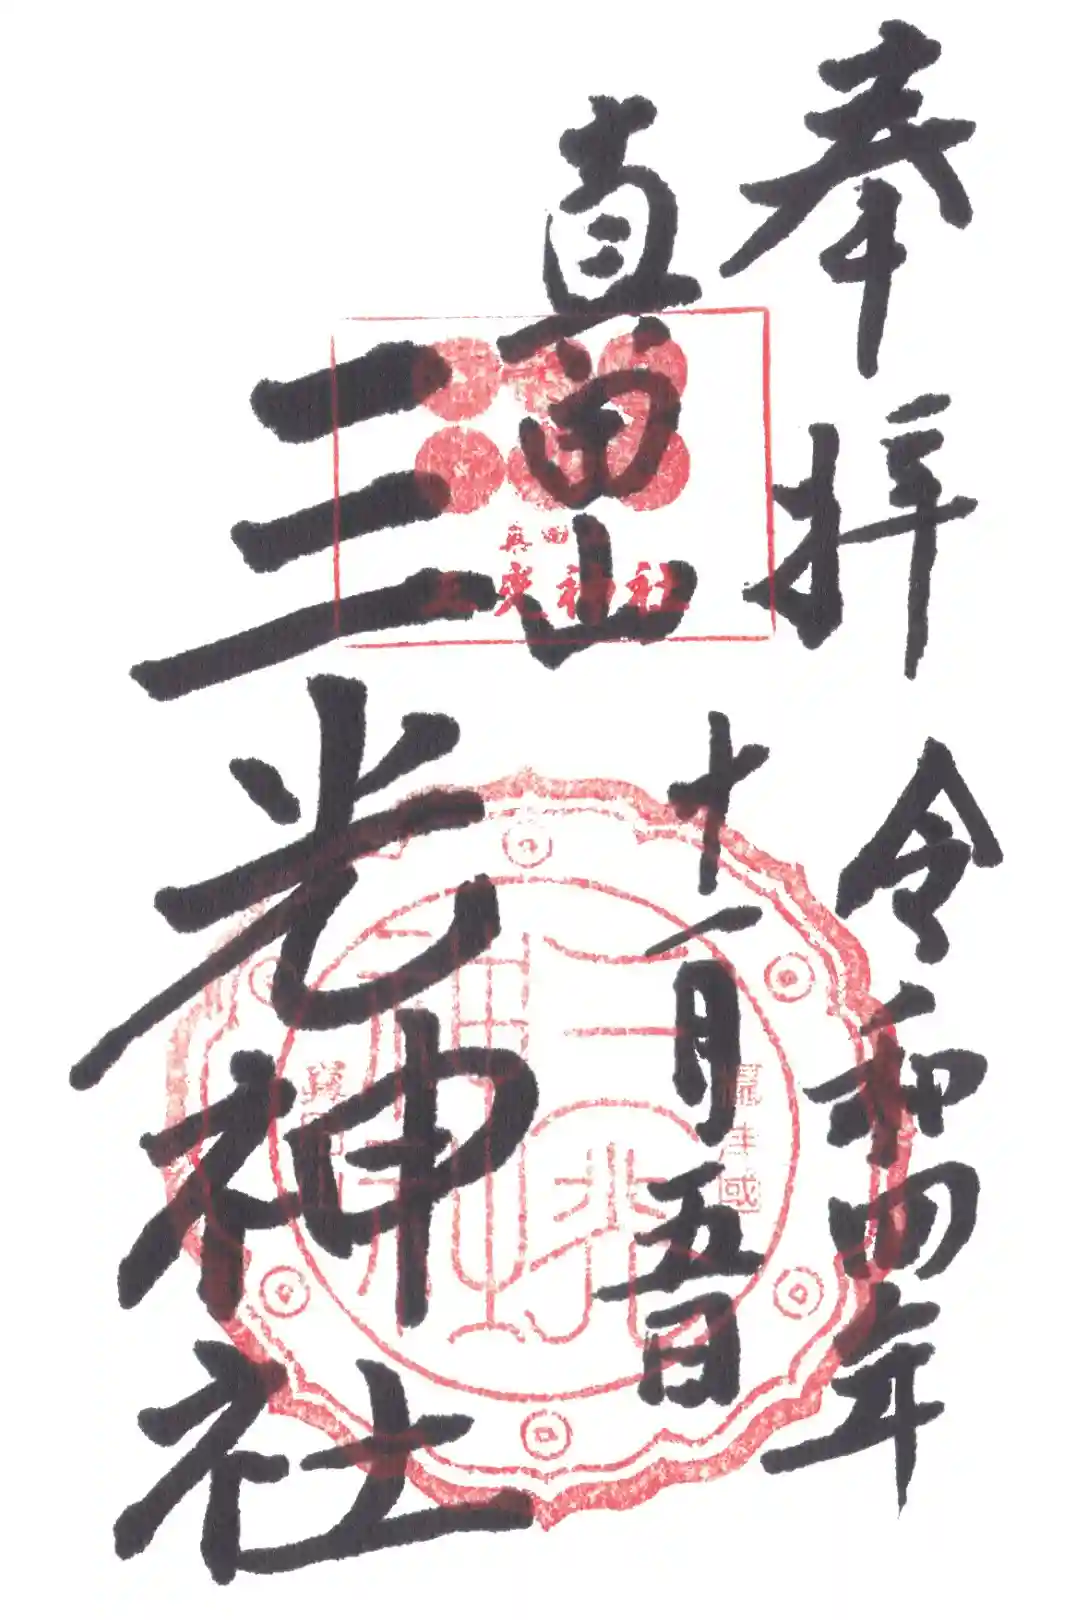 奉拝
令和四年
十一月五日
真田山
三光神社
真田山
三光神社